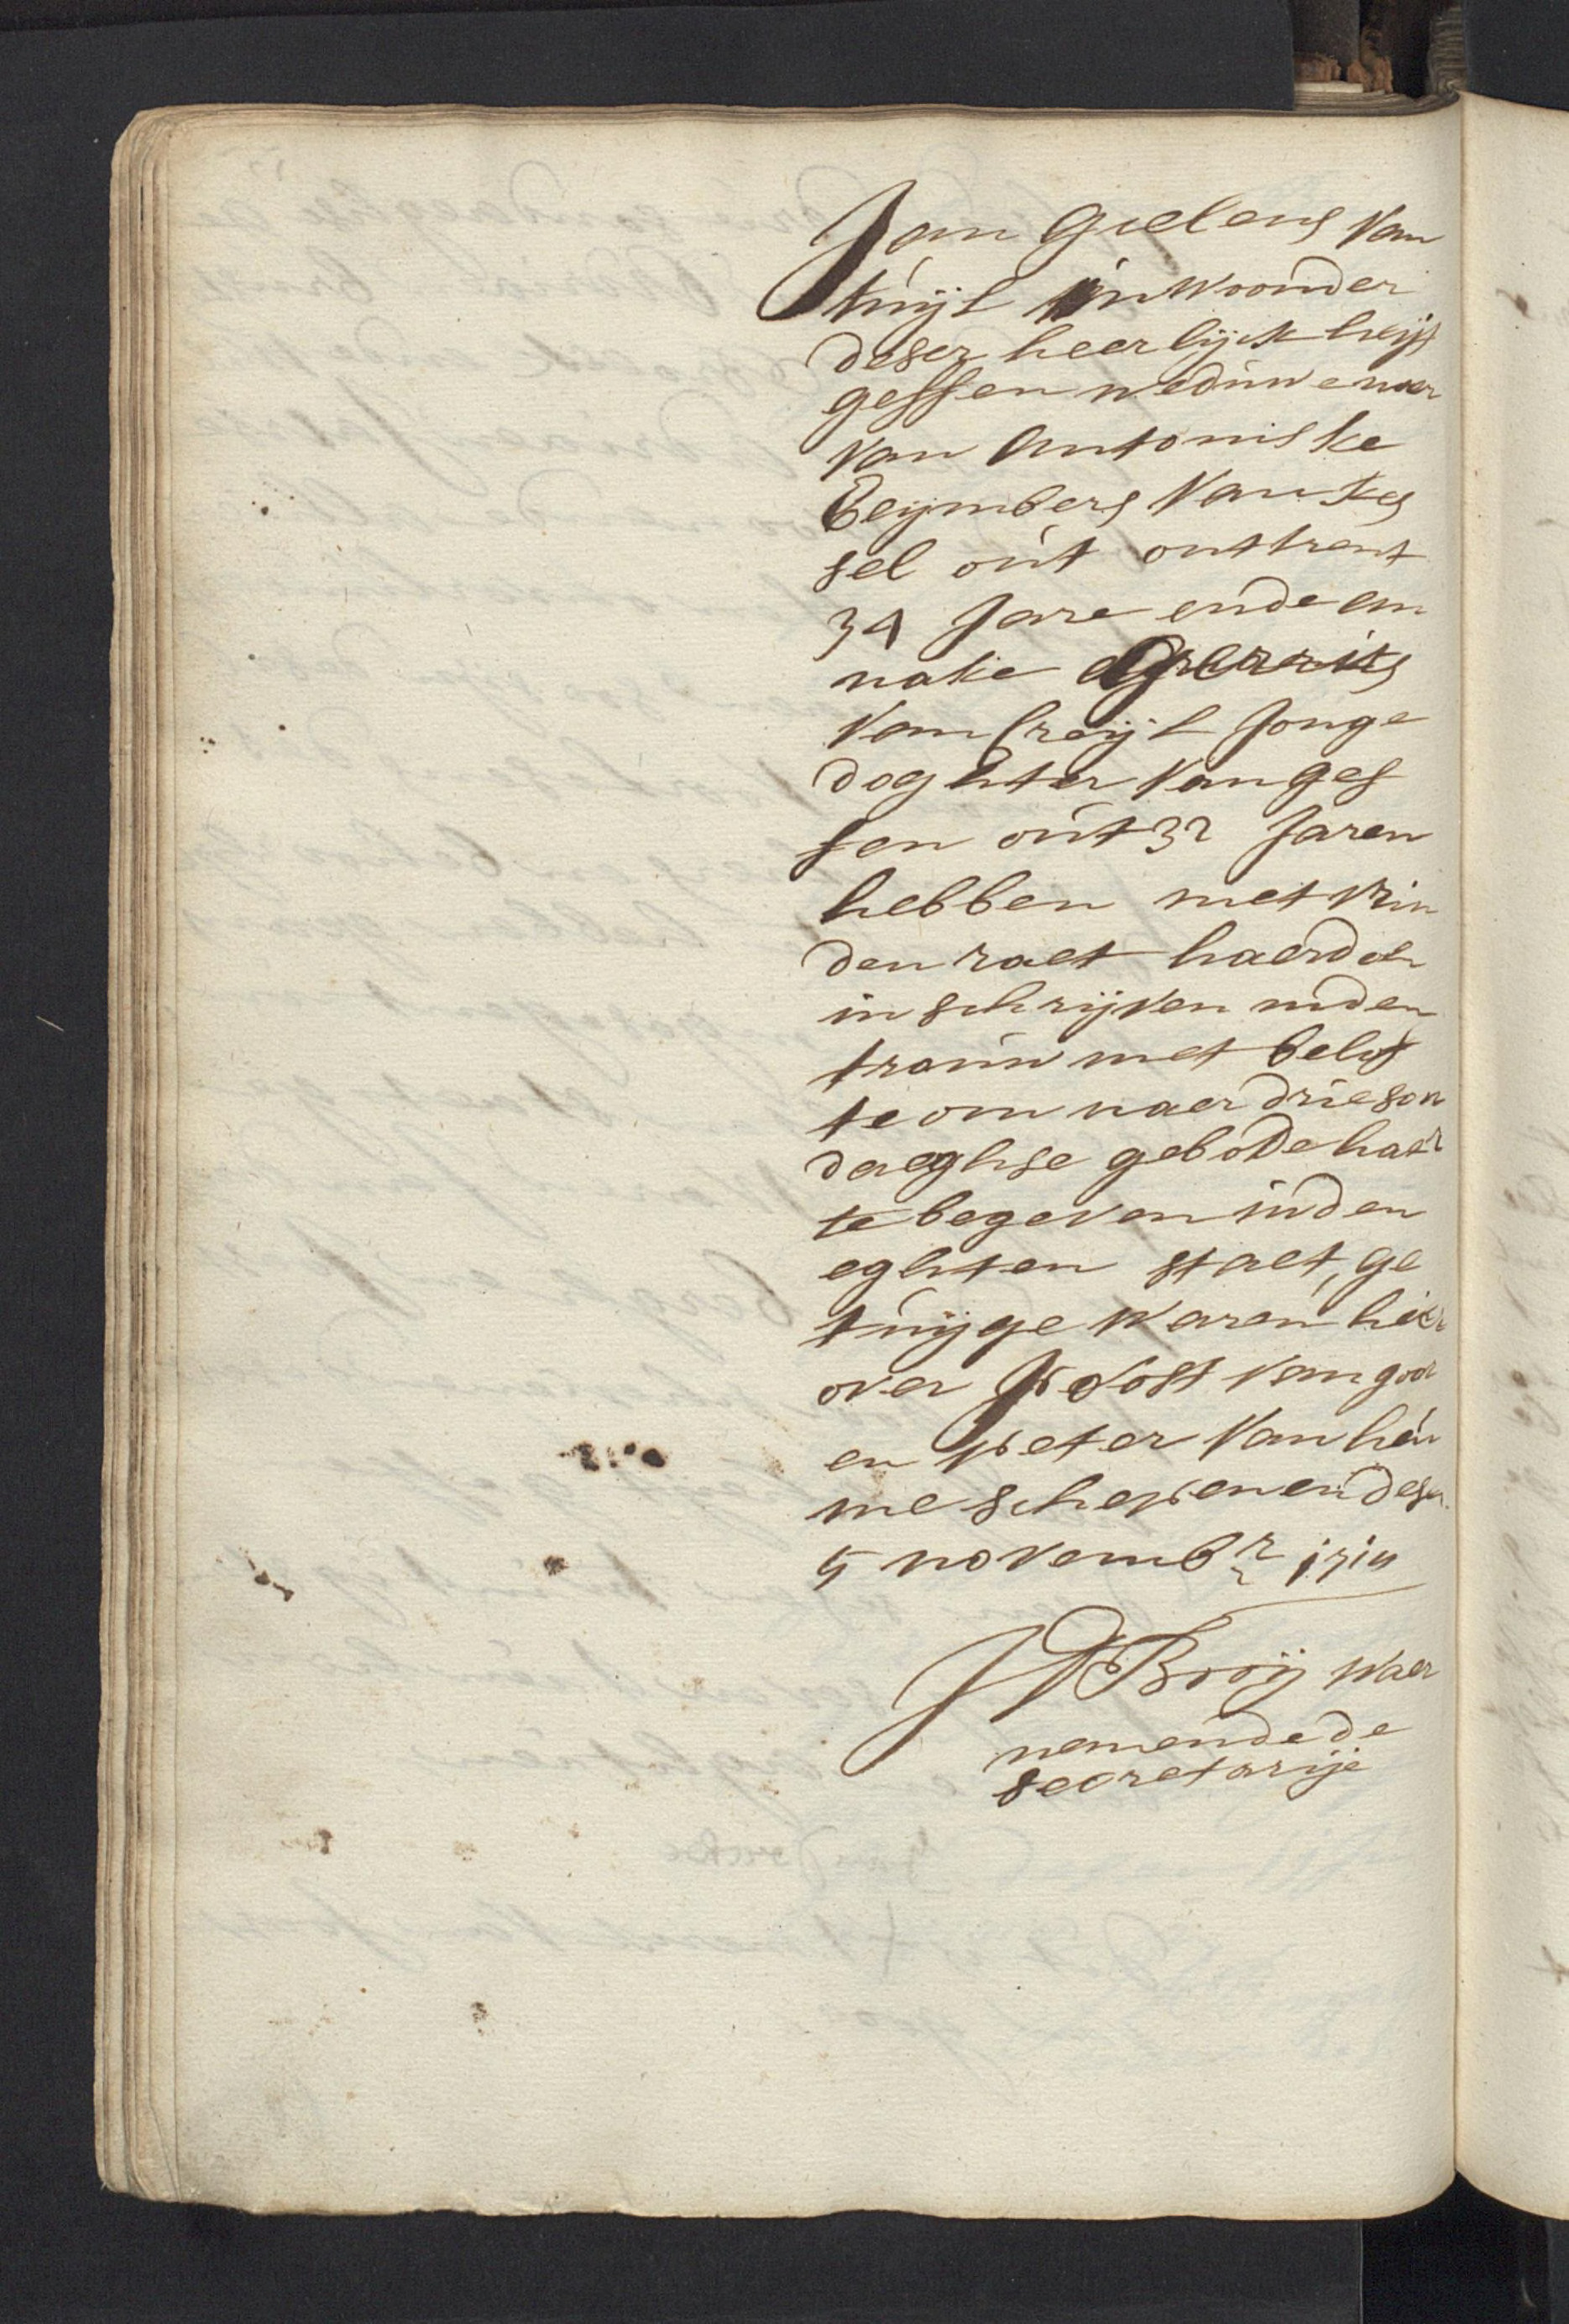 Jan Gielens van
tuijl inwoonder
deser heerlijckheijt
gessen weduwenaer
van Antoniske
Beijmbers van Kes
sel out ontrent
34 Jare ende an
neke
van Creijl Jonge
doghter van ges
sen out 32 Jaren
hebben met vrin
den raet haer doen
in schrijven inden
trouw met belof
te om naer drie son
daeghse gebode haer
te begeven inden
eghten staet, ge
tuijge waren hier
over Joost van goor
en peter van heu
me schepenen deser
5 novembr 1714
JVBrooij waer
nemende de
secretarije